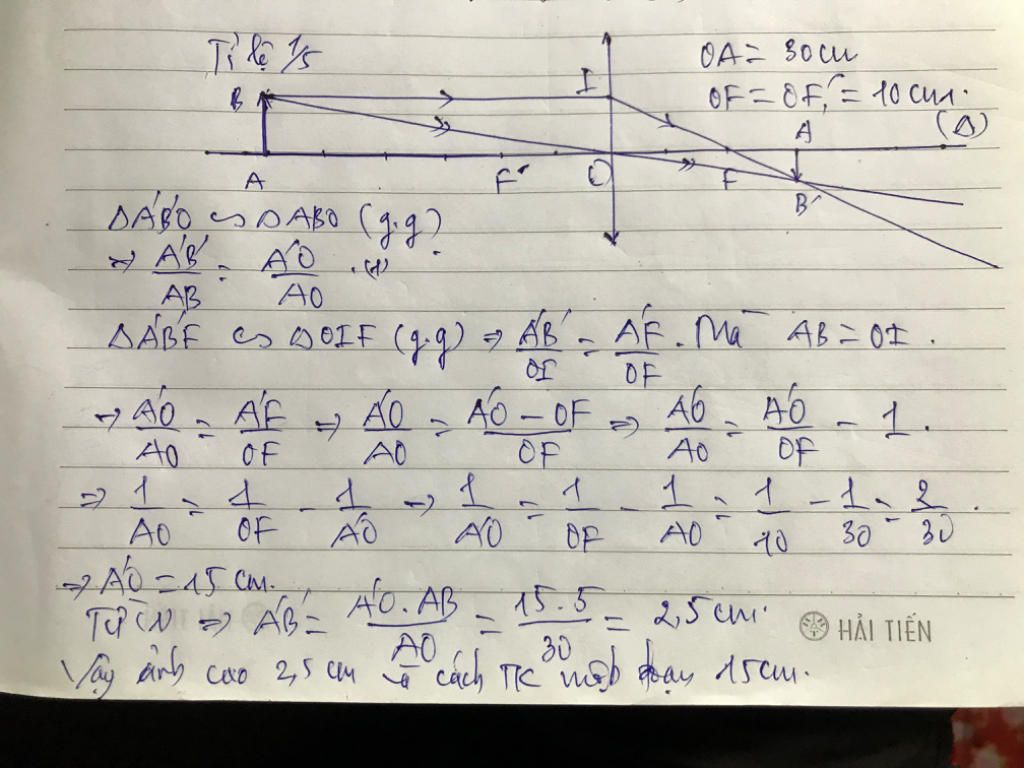 Tỉ lệ 1/5
OA = 30 cm
OF = OF' = 10 cm.
B I A (Δ)
A F' O F B'
ΔA'B'O ∽ ΔABO (g.g)
⇒ A'B'/AB = A'O/AO . (1)
ΔA'B'F ∽ ΔOIF (g.g) ⇒ A'B'/OI = A'F/OF . Mà AB = OI .
⇒ A'O/AO = A'F/OF ⇒ A'O/AO = A'O - OF/OF ⇒ A'O/AO = A'O/OF - 1 .
⇒ 1/AO = 1/OF - 1/A'O ⇒ 1/A'O = 1/OF - 1/AO = 1/10 - 1/30 = 2/30 .
⇒ A'O = 15 cm.
Từ (1) ⇒ A'B' = A'O . AB/AO = 15 . 5/30 = 2,5 cm.
HẢI TIẾN
Vậy ảnh cao 2,5 cm và cách TK một đoạn 15 cm.